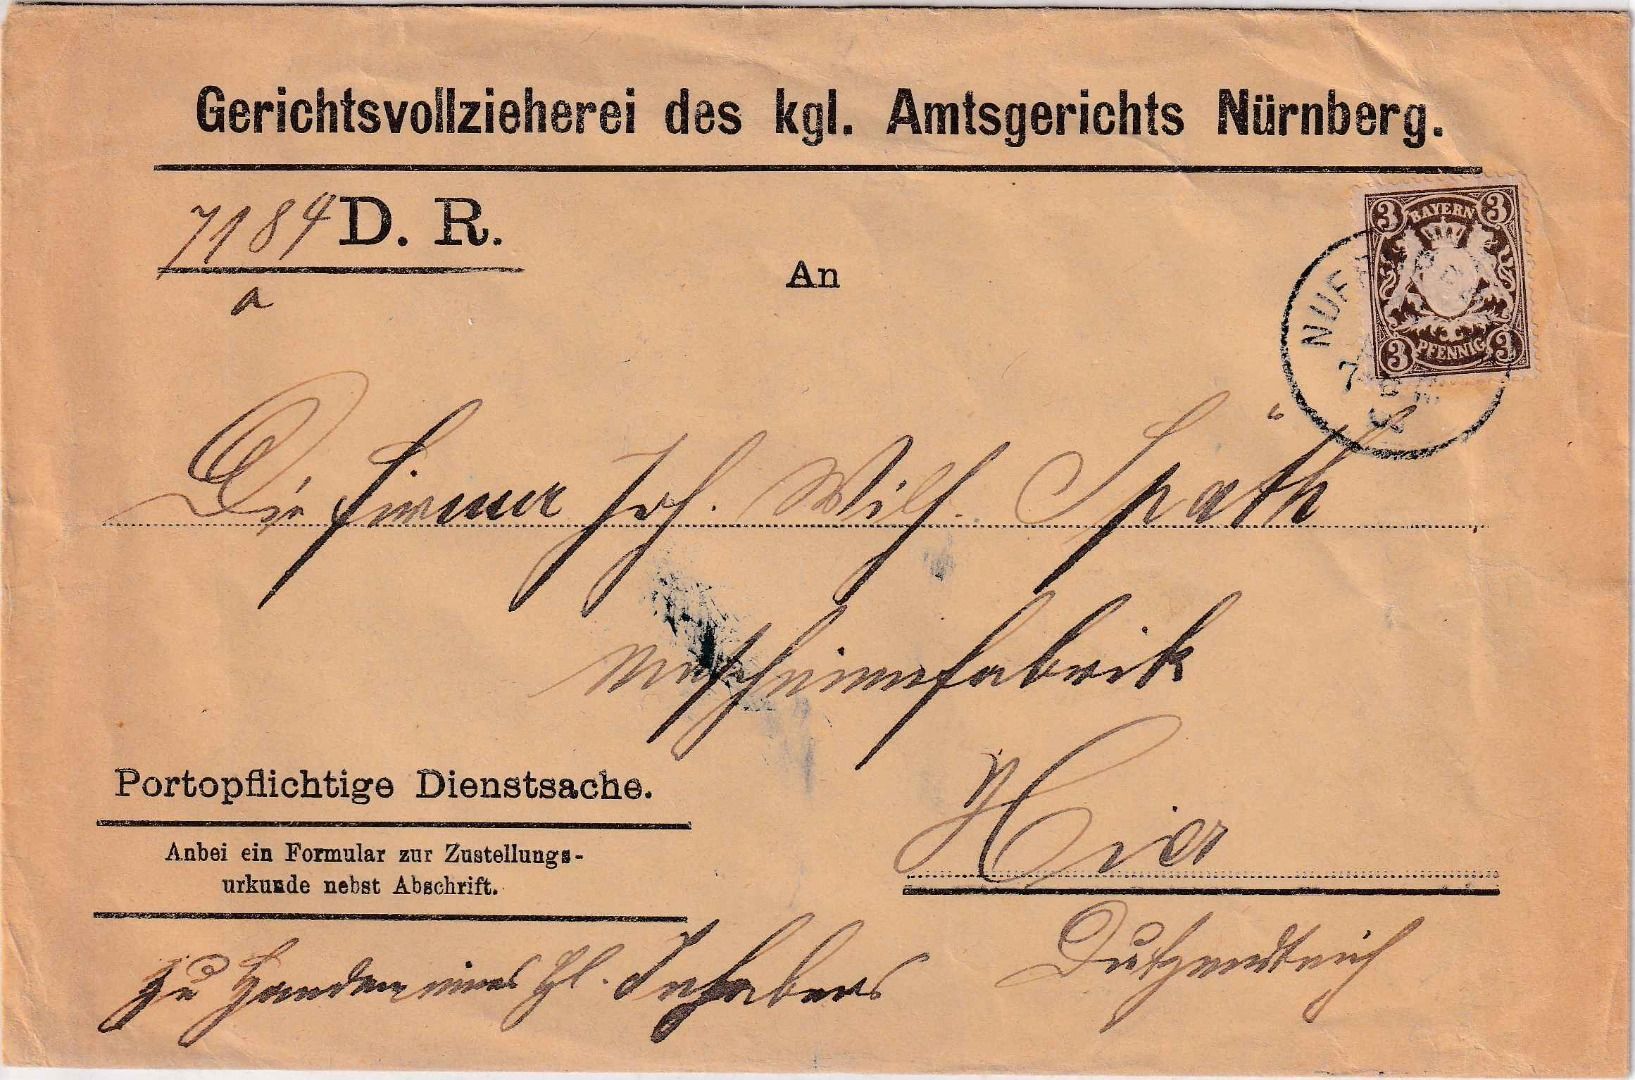 Gerichtsvollzieherei des kgl. Amtsgerichts Nürnberg.
7184 D. R.
a
An
3 BAYERN 3
3 PFENNIG 3
Die Firma Joh. Wilh. Späth
Maschinenfabrik
Hier
Dutzendteich
Portopflichtige Dienstsache.
Anbei ein Formular zur Zustellungs-
urkunde nebst Abschrift.
zu Handen eines Hl. Inhabers